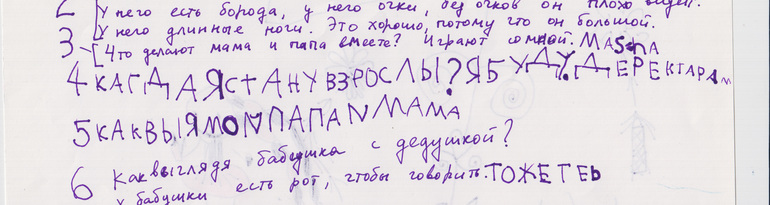 2 У него есть борода, у него очки, без очков он плохо видит.
3 У него длинные ноги. Это хорошо, потому что он большой.
Что делают мама и папа вместе? Играют со мной. МАSHA
4 КАГДАЯСТАНУВЗРОСЛЫ?ЯБУДУДЕРЕКТАРАМ
5 КАКВЫЯМОNПАПАNМАМА
6 Как выглядя бабушка с дедушкой?
У бабушки есть рот, чтобы говорить. ТОЖЕТЕЬ